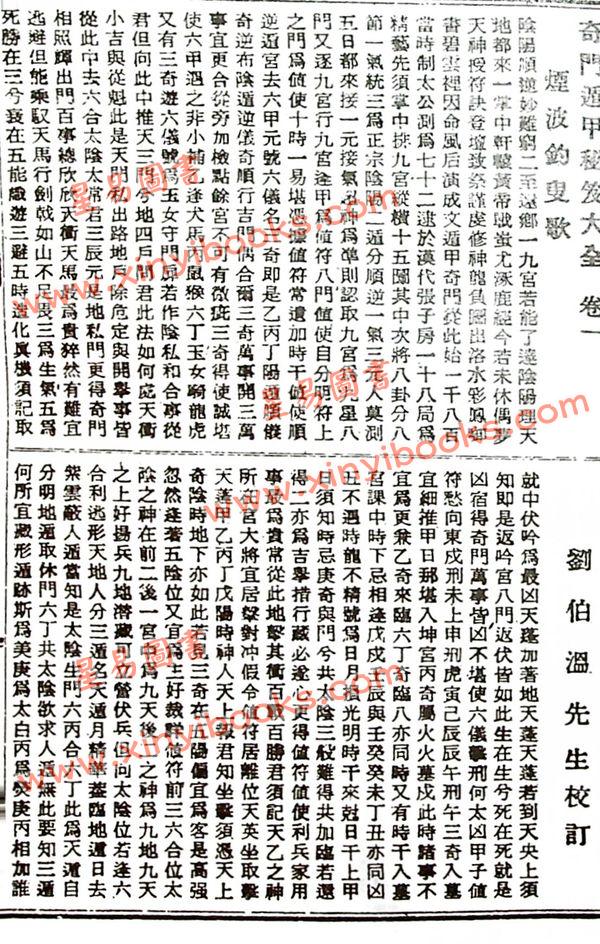 奇門遁甲秘笈大全 卷一
煙波釣叟歌
陰陽順逆妙難窮二至還鄉一九宮若能了達陰陽理天
地都來一掌中軒轅黃帝戰蚩尤涿鹿經今若未休偶夢
天神授符訣登壇致祭謹虔修神龍負圖出洛水彩鳳啣
書碧雲裡因命風后演成文遁甲奇門從此始一千八百
當時制太公測爲七十二逮於漢代張子房一十八局爲
精藝先須掌中排九宮縱橫十五圖其中次將八卦分八
節一氣統三爲正宗陰陽二遁分順逆一氣三元人莫測
五日都來接一元接氣超神爲準則認取九宮爲九星八
門又逐九宮行九宮逢甲爲值符八門值使自分明符上
之門爲值使十時一易堪憑據值符常遣加時干值使順
逆遁宮去六甲元號六儀名三奇即是乙丙丁陽遁順儀
奇逆布陰遁逆儀奇順行吉門偶合爾三奇萬事開三萬
事宜更合從旁加檢點餘宮不可有微疵三奇得使誠堪
使六甲遇之非小補逢犬馬丙鼠猴六丁玉女騎龍虎
又有三奇遊六儀號爲玉女守門扉若作陰私和合事從
君但向此中推天三門兮地四戶問君此法如何處天衝
小吉與從魁此是天門私出路地戶除危定與開舉事皆
從此中去六合太陰太常君三辰元是地私門更得奇門
相照輝出門百事總欣欣天衝天馬最爲貴猝然有難宜
逃避但能乘馭天馬行劍戟如山不足畏三爲生氣五爲
死勝在三兮衰在五能識遊三避五時造化真機須記取
劉伯溫先生校訂
就中伏吟爲最凶天蓬加著地天蓬天蓬若到天央上須
知即是返吟宮八門返伏皆如此生在生兮死在死就是
凶宿得奇門萬事皆凶不堪使六儀擊刑何太凶甲子值
符愁向東戌刑未上申刑虎寅巳辰辰午刑午三奇入墓
宜細推甲日那堪入坤宮丙奇屬火火墓戌此時諸事不
宜爲更兼乙奇來臨六丁奇臨八亦同時又有時干入墓
宮課中時下忌相逢戊戌壬辰與壬癸癸未丁丑亦同凶
五不遇時龍不精號爲日月損光明時干來尅日干上甲
日須知時忌庚奇與門兮共太陰三般難得共加臨若還
得二亦爲吉舉措行藏必遂心更得值符值使利兵家用
事最爲貴常從此地擊其衝百戰百勝君須記天乙之神
所在宮大將宜居擊對冲假令值符居離位天英坐取擊
天蓬甲乙丙丁戊陽時神人天上報君知坐擊須憑天上
奇陰時地下亦如此若見三奇在五陽偏宜爲客是高强
忽然逢著五陰位又宜爲主好裁詳值符前三六合位太
陰之神在前二後一宮中爲九天後二之神爲九地九天
之上好揚兵九地潛藏可立營伏兵但向太陰位若逢六
合利逃形天地人分三遁名天遁月精華蓋臨地遁日去
紫雲蔽人遁當知是太陰生門六丙合六丁此爲天遁自
分明地遁取休門六丁共太陰欲求人遁無此要知三遁
何所宜藏形遁跡斯爲美庚爲太白丙爲熒庚丙相加誰
星易圖書
www.xinyibooks.com
星易圖書
www.xinyibooks.com
星易圖書
www.xinyibooks.com
星易圖書
www.xinyibooks.com